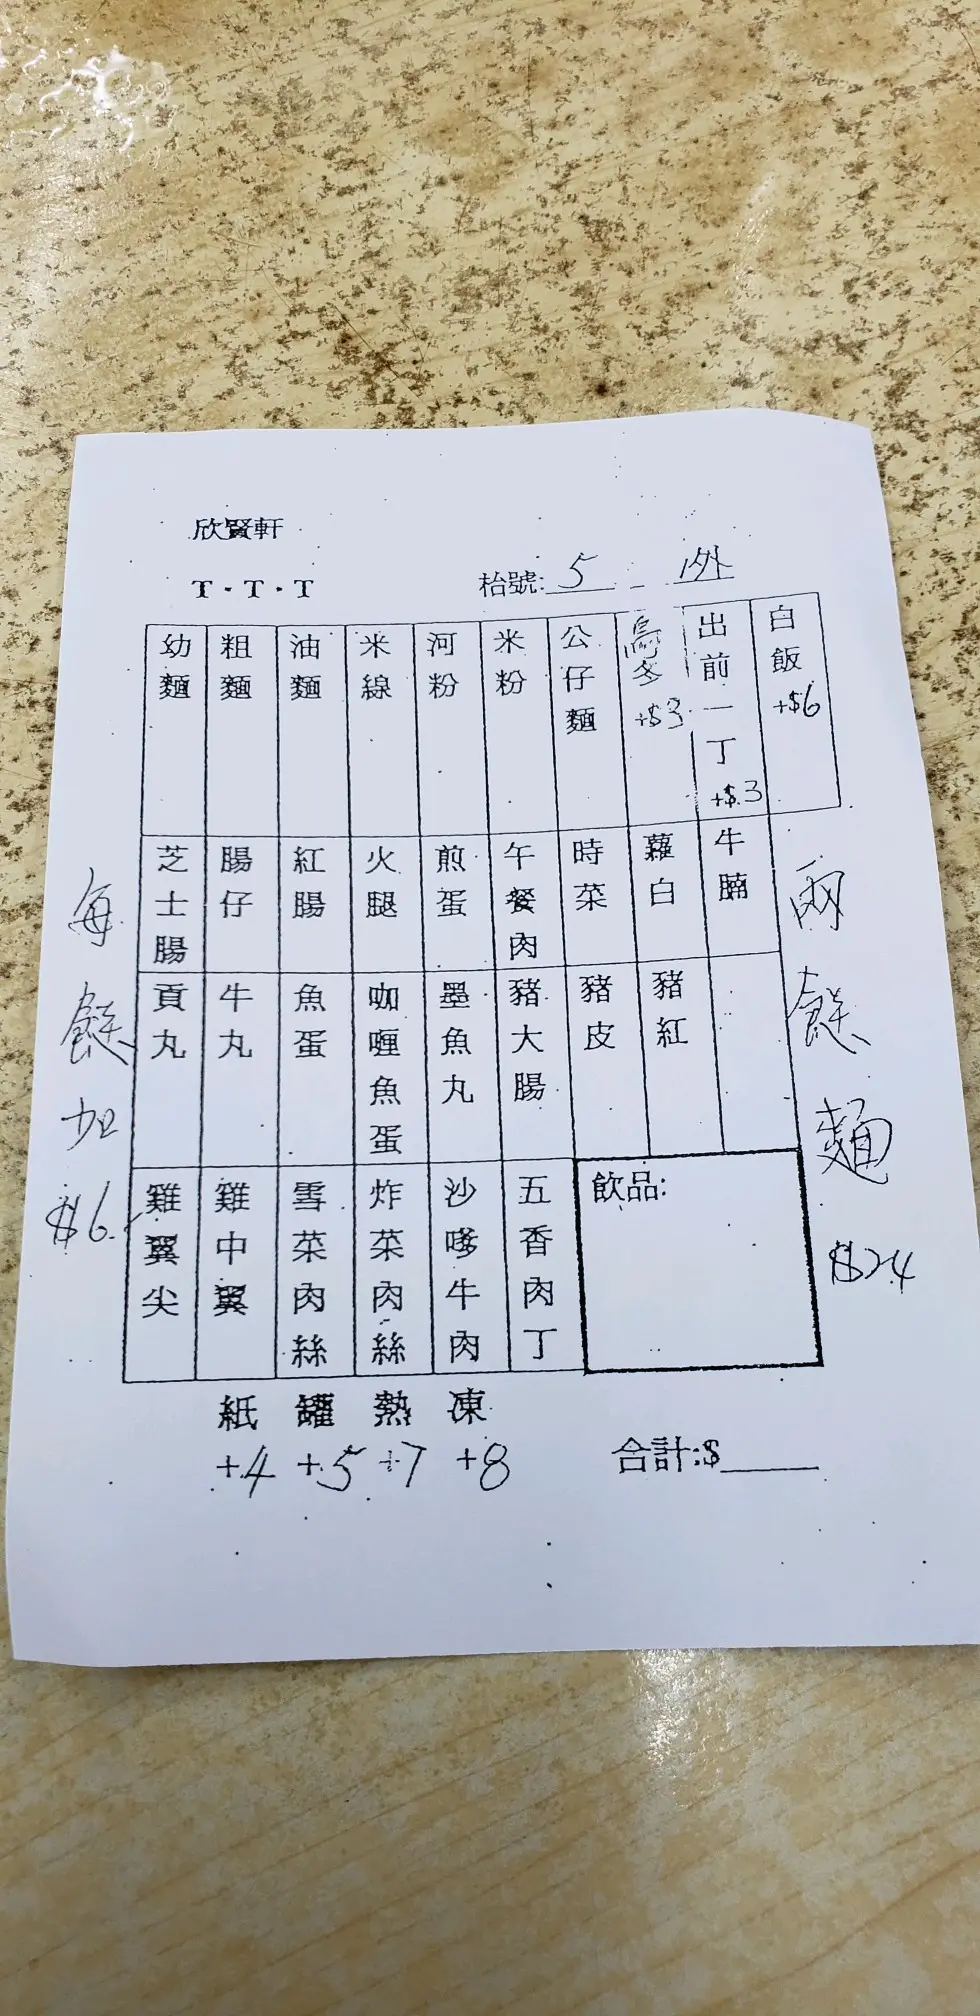 欣賢軒
T．T．T
枱號: 5 外
幼麵
粗麵
油麵
米線
河粉
米粉
公仔麵
烏冬 +$3
出前一丁 +$3
白飯 +$6
芝士腸
腸仔
紅腸
火腿
煎蛋
午餐肉
時菜
蘿白
牛腩
貢丸
牛丸
魚蛋
咖喱魚蛋
墨魚丸
豬大腸
豬皮
豬紅
雞翼尖
雞中翼
雪菜肉絲
炸菜肉絲
沙嗲牛肉
五香肉丁
飲品:
每餸加 $6
兩餸麵 $24
紙 罐 熱 凍
+4 +5 +7 +8
合計:$